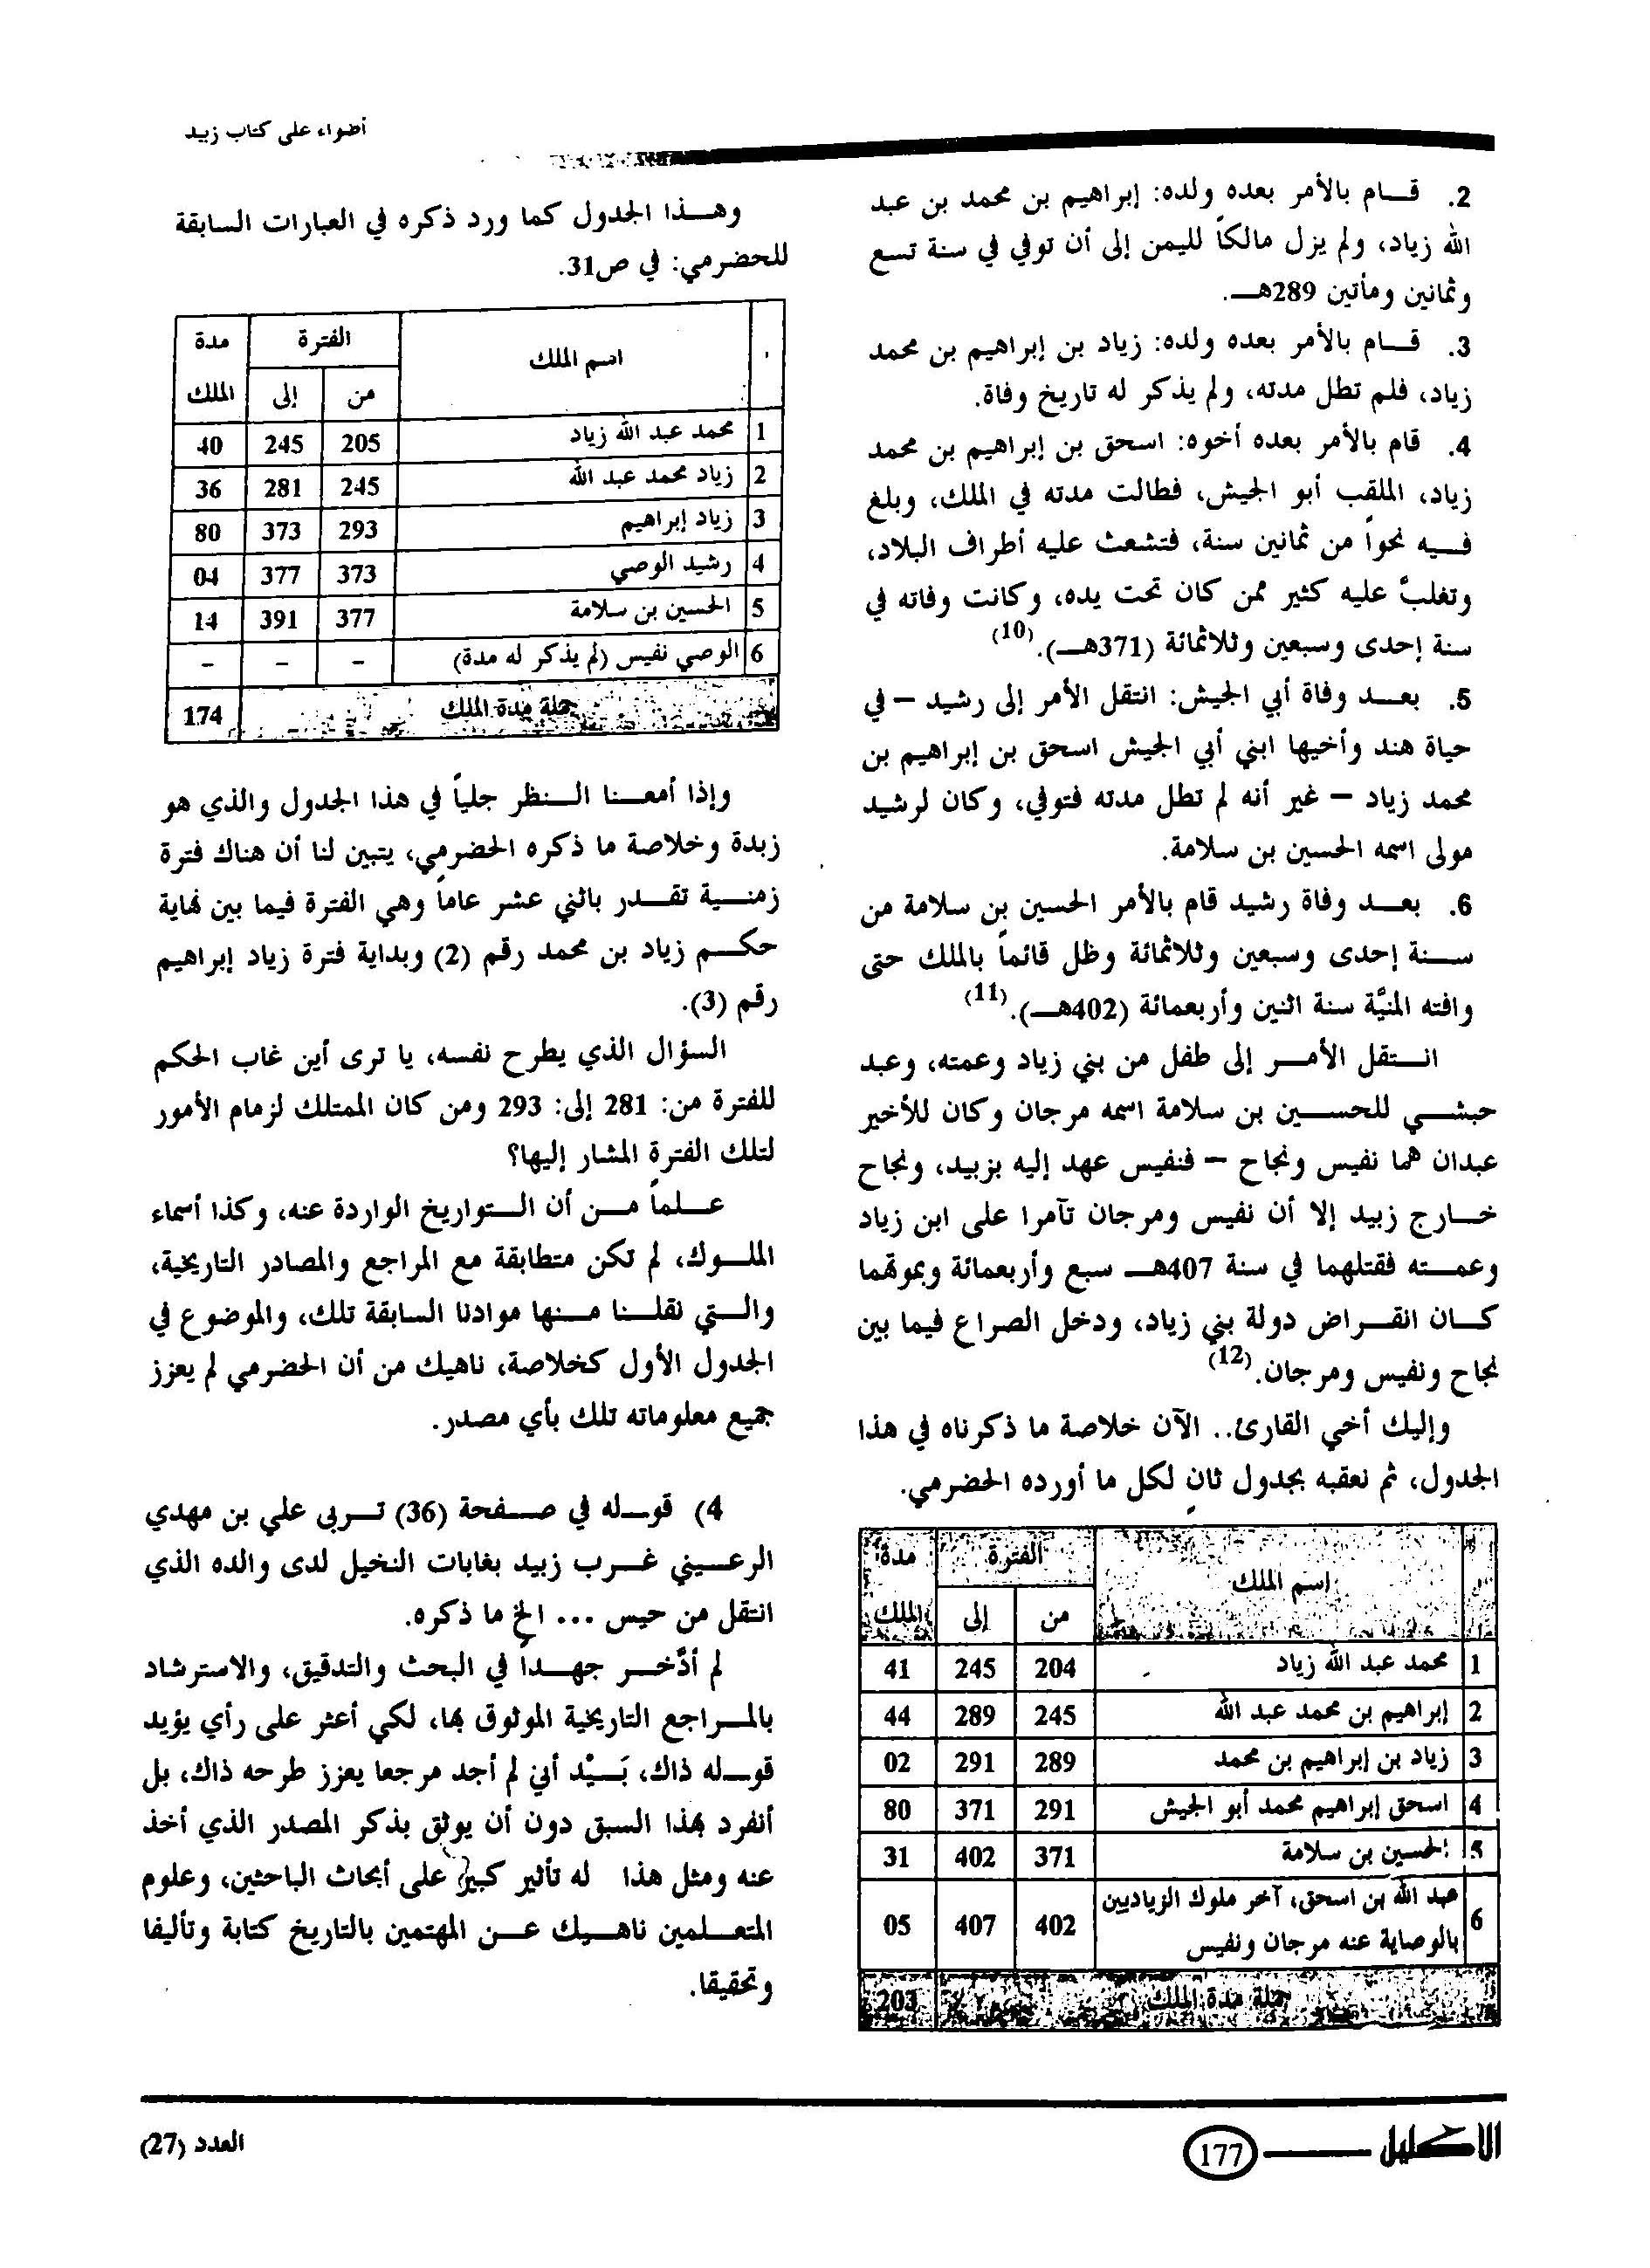 أضواء على كتاب زبيد
2. قام بالأمر بعده ولده: إبراهيم بن محمد بن عبد
الله زياد، ولم يزل مالكاً لليمن إلى أن توفي في سنة تسع
وثمانين ومأتين 289هـ.
3. قام بالأمر بعده ولده: زياد بن إبراهيم بن محمد
زياد، فلم تطل مدته، ولم يذكر له تاريخ وفاة.
4. قام بالأمر بعده أخوه: اسحق بن إبراهيم بن محمد
زياد، الملقب أبو الجيش، فطالت مدته في الملك، وبلغ
فيه نحواً من ثمانين سنة، فتشعث عليه أطراف البلاد،
وتغلبَّ عليه كثير ممن كان تحت يده، وكانت وفاته في
سنة إحدى وسبعين وثلاثمائة (371هـ).(10)
5. بعد وفاة أبي الجيش: انتقل الأمر إلى رشيد – في
حياة هند وأخيها ابني أبي الجيش اسحق بن إبراهيم بن
محمد زياد – غير أنه لم تطل مدته فتوفي، وكان لرشيد
مولى اسمه الحسين بن سلامة.
6. بعد وفاة رشيد قام بالأمر الحسين بن سلامة من
سنة إحدى وسبعين وثلاثمائة وظل قائماً بالملك حتى
وافته المنيَّة سنة اثنين وأربعمائة (402هـ).(11)
انتقل الأمر إلى طفل من بني زياد وعمته، وعبد
حبشي للحسين بن سلامة اسمه مرجان وكان للأخير
عبدان هما نفيس ونجاح – فنفيس عهد إليه بزبيد، ونجاح
خارج زبيد إلا أن نفيس ومرجان تآمرا على ابن زياد
وعمته فقتلهما في سنة 407هـ سبع وأربعمائة وبموتهما
كان انقراض دولة بني زياد، ودخل الصراع فيما بين
نجاح ونفيس ومرجان.(12)
وإليك أخي القارئ.. الآن خلاصة ما ذكرناه في هذا
الجدول، ثم نعقبه بجدول ثانٍ لكل ما أورده الحضرمي.
اسم الملك الفترة مدة
من إلى الملك
1 محمد عبد الله زياد 204 245 41
2 إبراهيم بن محمد عبد الله 245 289 44
3 زياد بن إبراهيم بن محمد 289 291 02
4 اسحق إبراهيم محمد أبو الجيش 291 371 80
5 الحسين بن سلامة 371 402 31
6 عبد الله بن اسحق، آخر ملوك الزياديين
بالوصاية عنه مرجان ونفيس 402 407 05
جملة مدة الملك 203
وهذا الجدول كما ورد ذكره في العبارات السابقة
للحضرمي: في ص31.
اسم الملك الفترة مدة
من إلى الملك
1 محمد عبد الله زياد 205 245 40
2 زياد محمد عبد الله 245 281 36
3 زياد إبراهيم 293 373 80
4 رشيد الوصي 373 377 04
5 الحسين بن سلامة 377 391 14
6 الوصي نفيس (لم يذكر له مدة) – – –
جملة مدة الملك 174
وإذا أمعنا النظر جلياً في هذا الجدول والذي هو
زبدة وخلاصة ما ذكره الحضرمي، يتبين لنا أن هناك فترة
زمنية تقدر باثني عشر عاماً وهي الفترة فيما بين نهاية
حكم زياد بن محمد رقم (2) وبداية فترة زياد إبراهيم
رقم (3).
السؤال الذي يطرح نفسه، يا ترى أين غاب الحكم
للفترة من: 281 إلى: 293 ومن كان الممتلك لزمام الأمور
لتلك الفترة المشار إليها؟
علماً من أن التواريخ الواردة عنه، وكذا أسماء
الملوك، لم تكن متطابقة مع المراجع والمصادر التاريخية،
والتي نقلنا منها موادنا السابقة تلك، والموضوع في
الجدول الأول كخلاصة، ناهيك من أن الحضرمي لم يعزز
جميع معلوماته تلك بأي مصدر.
4) قوله في صفحة (36) تربى علي بن مهدي
الرعيني غرب زبيد بغابات النخيل لدى والده الذي
انتقل من حيس ... الخ ما ذكره.
لم أدَّخر جهداً في البحث والتدقيق، والاسترشاد
بالمراجع التاريخية الموثوق بها، لكي أعثر على رأي يؤيد
قوله ذاك، بَيْد أني لم أجد مرجعا يعزز طرحه ذاك، بل
أنفرد بهذا السبق دون أن يوثق بذكر المصدر الذي أخذ
عنه ومثل هذا له تأثير كبير على أبحاث الباحثين، وعلوم
المتعلمين ناهيك عن المهتمين بالتاريخ كتابة وتأليفا
وتحقيقا.
الاكليل 177 العدد (27)